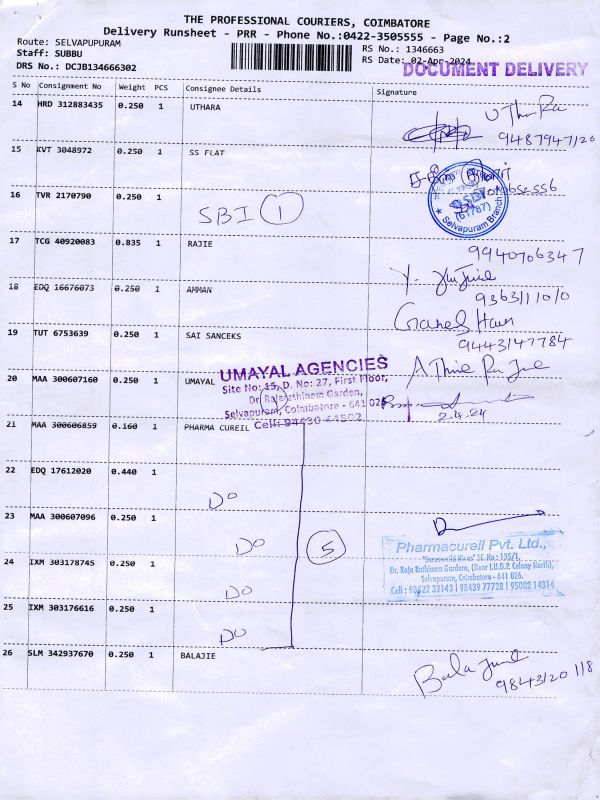 THE PROFESSIONAL COURIERS, COIMBATORE
Delivery Runsheet - PRR - Phone No.:0422-3505555 - Page No.:2
Route: SELVAPUPURAM
Staff: SUBBU
RS No.: 1346663
DRS No.: DCJB134666302
RS Date: 02-Apr-2024
DOCUMENT DELIVERY
S No Consignment No Weight PCS Consignee Details Signature
14 HRD 312883435 0.250 1 UTHARA
15 KVT 3048972 0.250 1 SS FLAT
16 TVR 2170790 0.250 1
SBI 1
SBI
(61787)
Selvapuram Branch
17 TCG 40920083 0.835 1 RAJIE
9940706347
18 EDQ 16676073 0.250 1 AMMAN
19 TUT 6753639 0.250 1 SAI SANCEKS
9443147784
20 MAA 300607160 0.250 1 UMAYAL
UMAYAL AGENCIES
Site No: 15, D. No: 27, First Floor,
Dr. Rajarathinam Garden,
Selvapuram, Coimbatore - 641 026
Cell: 94430 41502
2.4.24
21 MAA 300606859 0.160 1 PHARMA CUREIL
22 EDQ 17612020 0.440 1
Do
23 MAA 300607096 0.250 1
Do
5
Pharmacureil Pvt. Ltd.,
"Saraswathi Nivas" SF. No : 135/1,
Dr. Raja Rathinam Gardens, (Near I.U.D.P. Colony North),
Selvapuram, Coimbatore - 641 026.
Cell : 98422 32143 | 98439 77728 | 95002 14314
24 IXM 303178745 0.250 1
Do
25 IXM 303176616 0.250 1
Do
26 SLM 342937670 0.250 1 BALAJIE